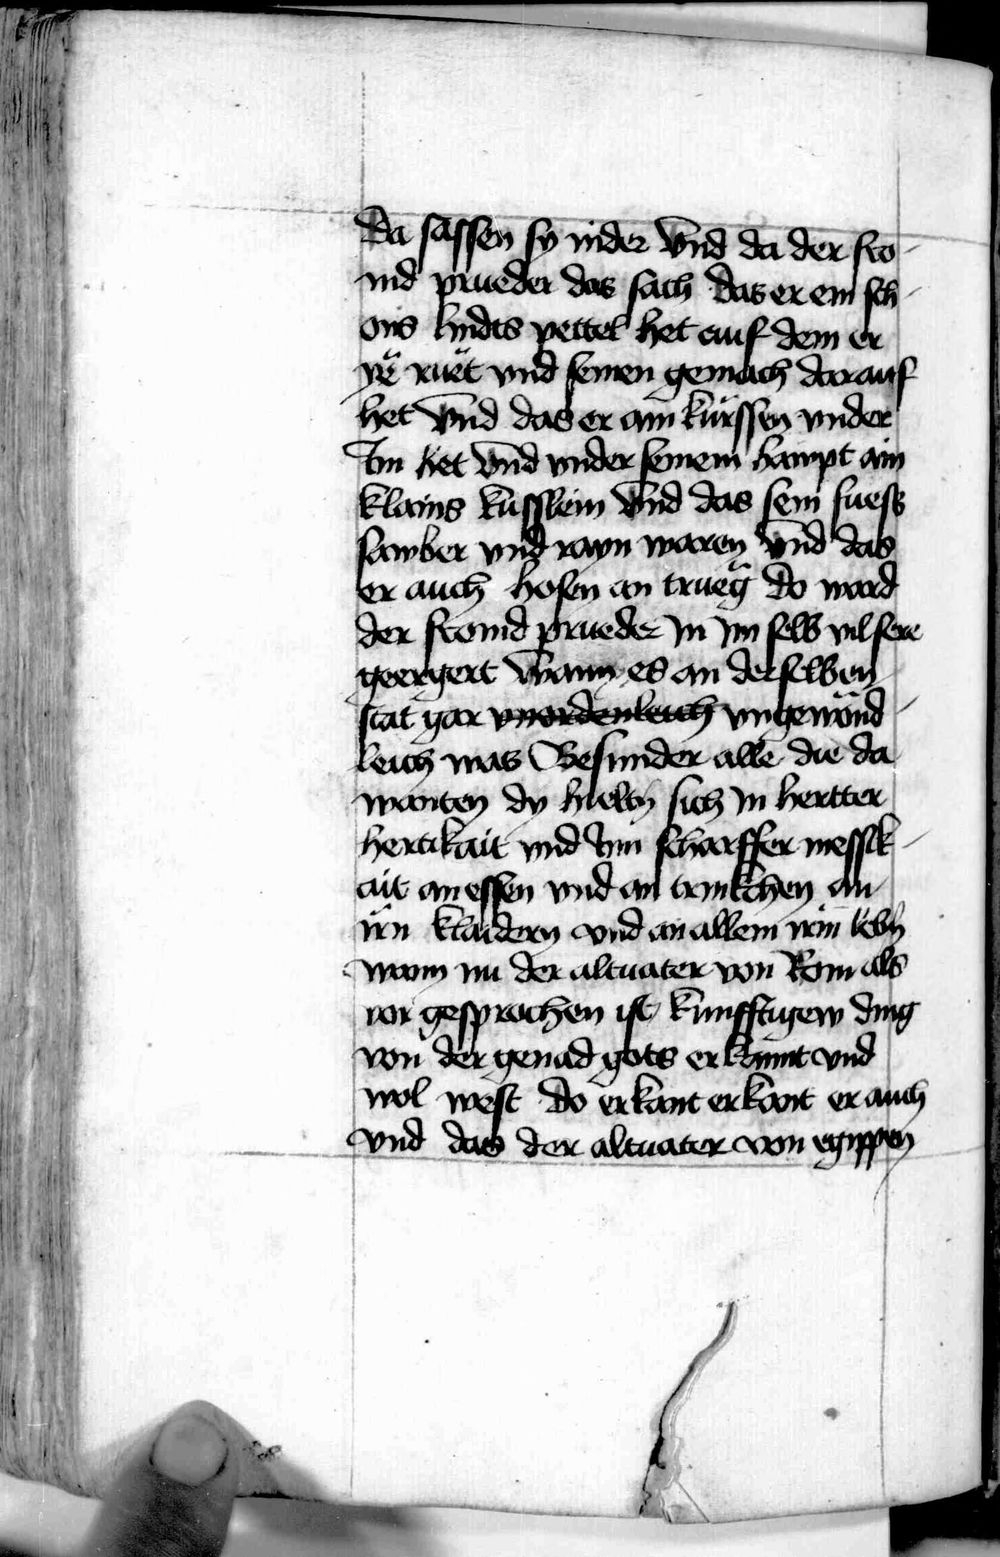 Da sassen sy nider Vnd da der fro-
md prueder das sach das er ein sch-
ons lindts pettel het auf dem er
ye ruet vnd seinen gemach darauf
het Vnd das er ain kürssen vnder
Im het Vnd vnder seinem haupt ain
klains kusslein Vnd das sein fuess
sawber vnd rayn waren Vnd das
er auch hosen an trueg Do ward
der fromd prueder in im selb vil sere
geergert Wann es an derselben
stat gar vnordenleich vngewönd-
leich was Besunder alle die da
wanten dy hieltn sich in hertter
hertikait vnd Inn scharffer messik-
ait an essen vnd an trinkchen an
irn klaidern vnd an allem irm lebn
wann nu der altuater von Rom als
vor gesprochen ist kunfftigew ding
von der genad gots erkannt vnd
wol west Do erkant erkant er auch
vnd das der altuater von egippen